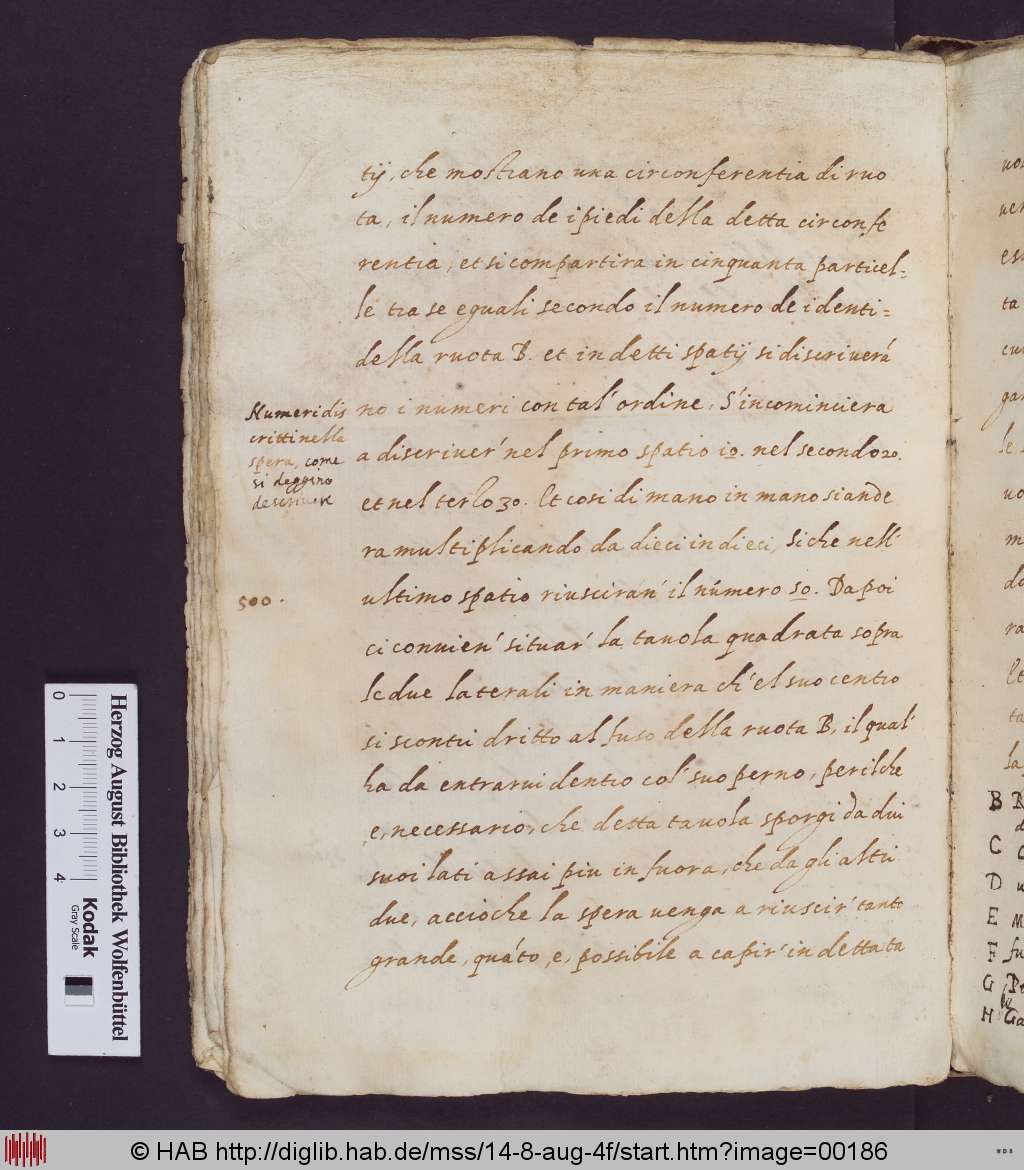 tij, che mostrano una circonferentia di ruo
ta, il numero de i piedi della detta circonfe
rentia, et si compartira in cinquanta particel=
le tra se eguali secondo il numero de i denti=
della ruota B. et in detti spatij si discriverá
Numeri dis
critti nella
spera, come
si deggino
descrivere
no i numeri con tal' ordine, S'incominciera
a discriver' nel primo spatio 10. nel secondo 20.
et nel terso 30. Et cosi di mano in mano si ande
ra multiplicando da dieci in dieci, siche nell'
500.
ultimo spatio riusciran' il número 50. Da poi
ci convien' situar' la tavola quadrata sopra
le due laterali in maniera ch'el suo centro
si scontri dritto al fuso della ruota B, il qual'
ha da entrarui dentro col' suo perno, perilche
e, necessario, che detta tauola sporgi da dui
suoi lati assai piu in fuora, che da gli altri
due, accioche la spera uenga a riuscir' tanto
grande, quáto, e, possibile a capir' in detta ta
B
C
D
E
F
G
H
0 1 2 3 4
Kodak
Gray Scale
Herzog August Bibliothek Wolfenbüttel
© HAB http://diglib.hab.de/mss/14-8-aug-4f/start.htm?image=00186